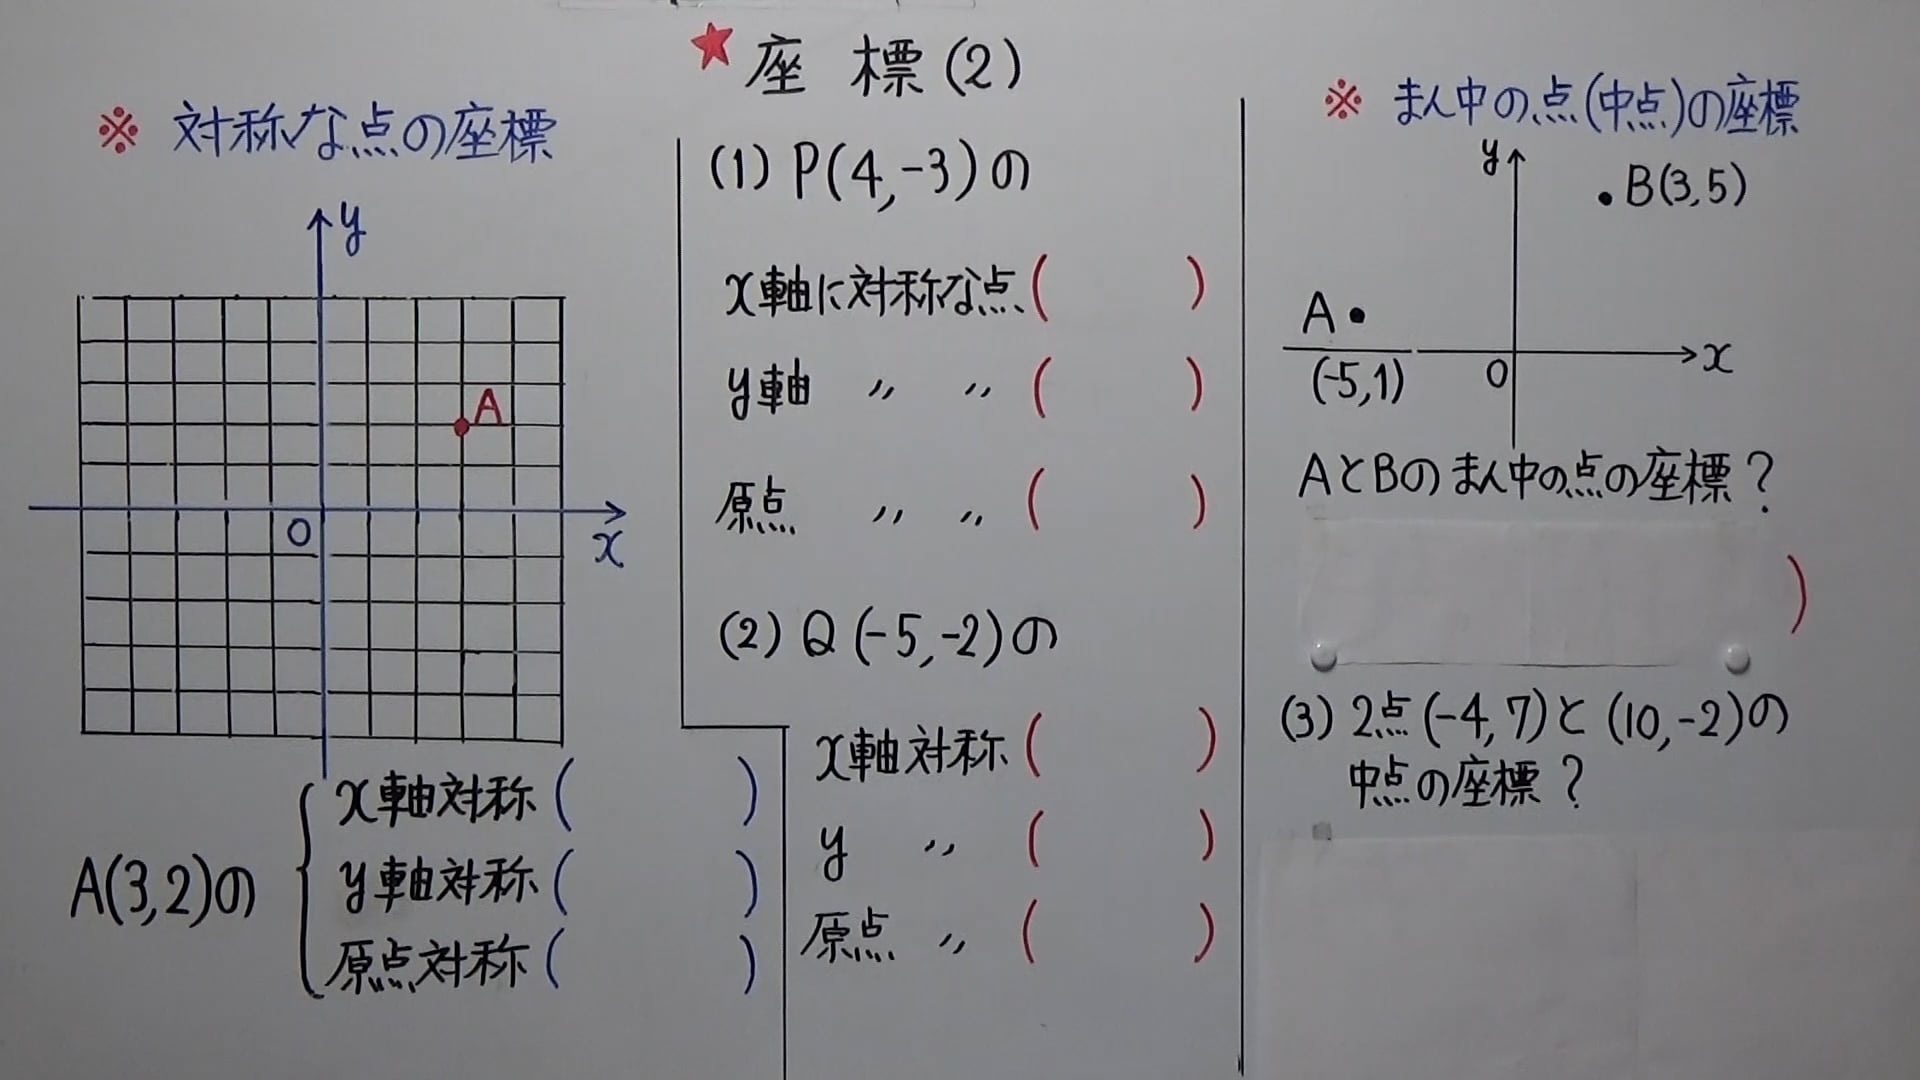 ★座標(2)
※対称な点の座標
y
A
O
x
A(3,2)の
x軸対称( )
y軸対称( )
原点対称( )
(1) P(4,-3)の
x軸に対称な点( )
y軸 〃 〃 ( )
原点 〃 〃 ( )
(2) Q(-5,-2)の
x軸対称( )
y 〃 ( )
原点 〃 ( )
※まん中の点(中点)の座標
y
B(3,5)
A
(-5,1)
O
x
AとBのまん中の点の座標?
)
(3) 2点(-4,7)と(10,-2)の
中点の座標?